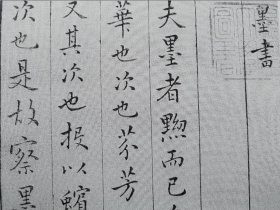 墨書
夫墨者黝而已
華也次也芬芳
又其次也投以鰾
次也是故察墨